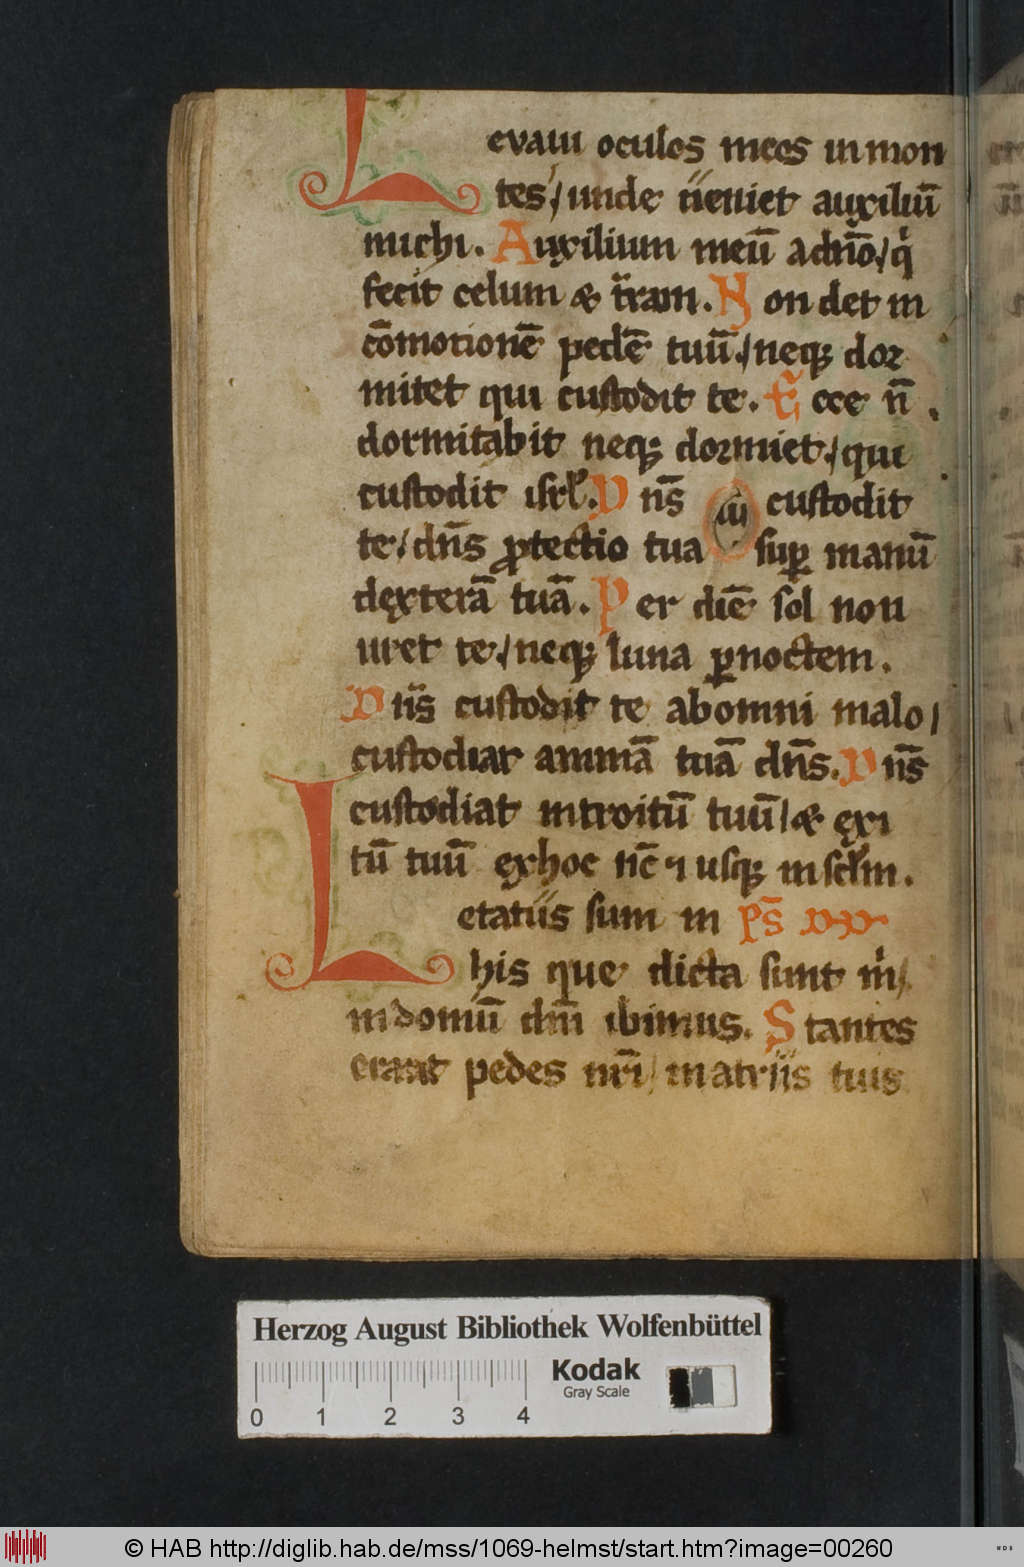 Levaui oculos meos in mon
tes / unde ueniet auxiliū
michi. Auxilium meū a dn̄o / q̇
fecit celum & t̄ram. Non det in
cōmotionē pedē tuū ./ neq; dor
mitet qui custodit te. Ecce n̄
dormitabit neq; dormiet ./ qui
custodit isrl̄. Dn̄s custodit
te / dn̄s ꝓtectio tua suꝑ manū
dexterā tuā. Per diē sol non
uret te ./ neq; luna ꝑ noctem.
Dn̄s custodit te ab omni malo /
custodiat animā tuā dn̄s. Dn̄s
custodiat introitū tuū / & exi
tū tuū ex hoc nc̄ ⁊ usq; in scl̄m.
Letatus sum in ps̄
his que dicta sunt ṁ /
in domū dn̄i ibimus. Stantes
erant pedes nr̄i / in atriis tuis
Herzog August Bibliothek Wolfenbüttel
Kodak
Gray Scale
0 1 2 3 4
© HAB http://diglib.hab.de/mss/1069-helmst/start.htm?image=00260